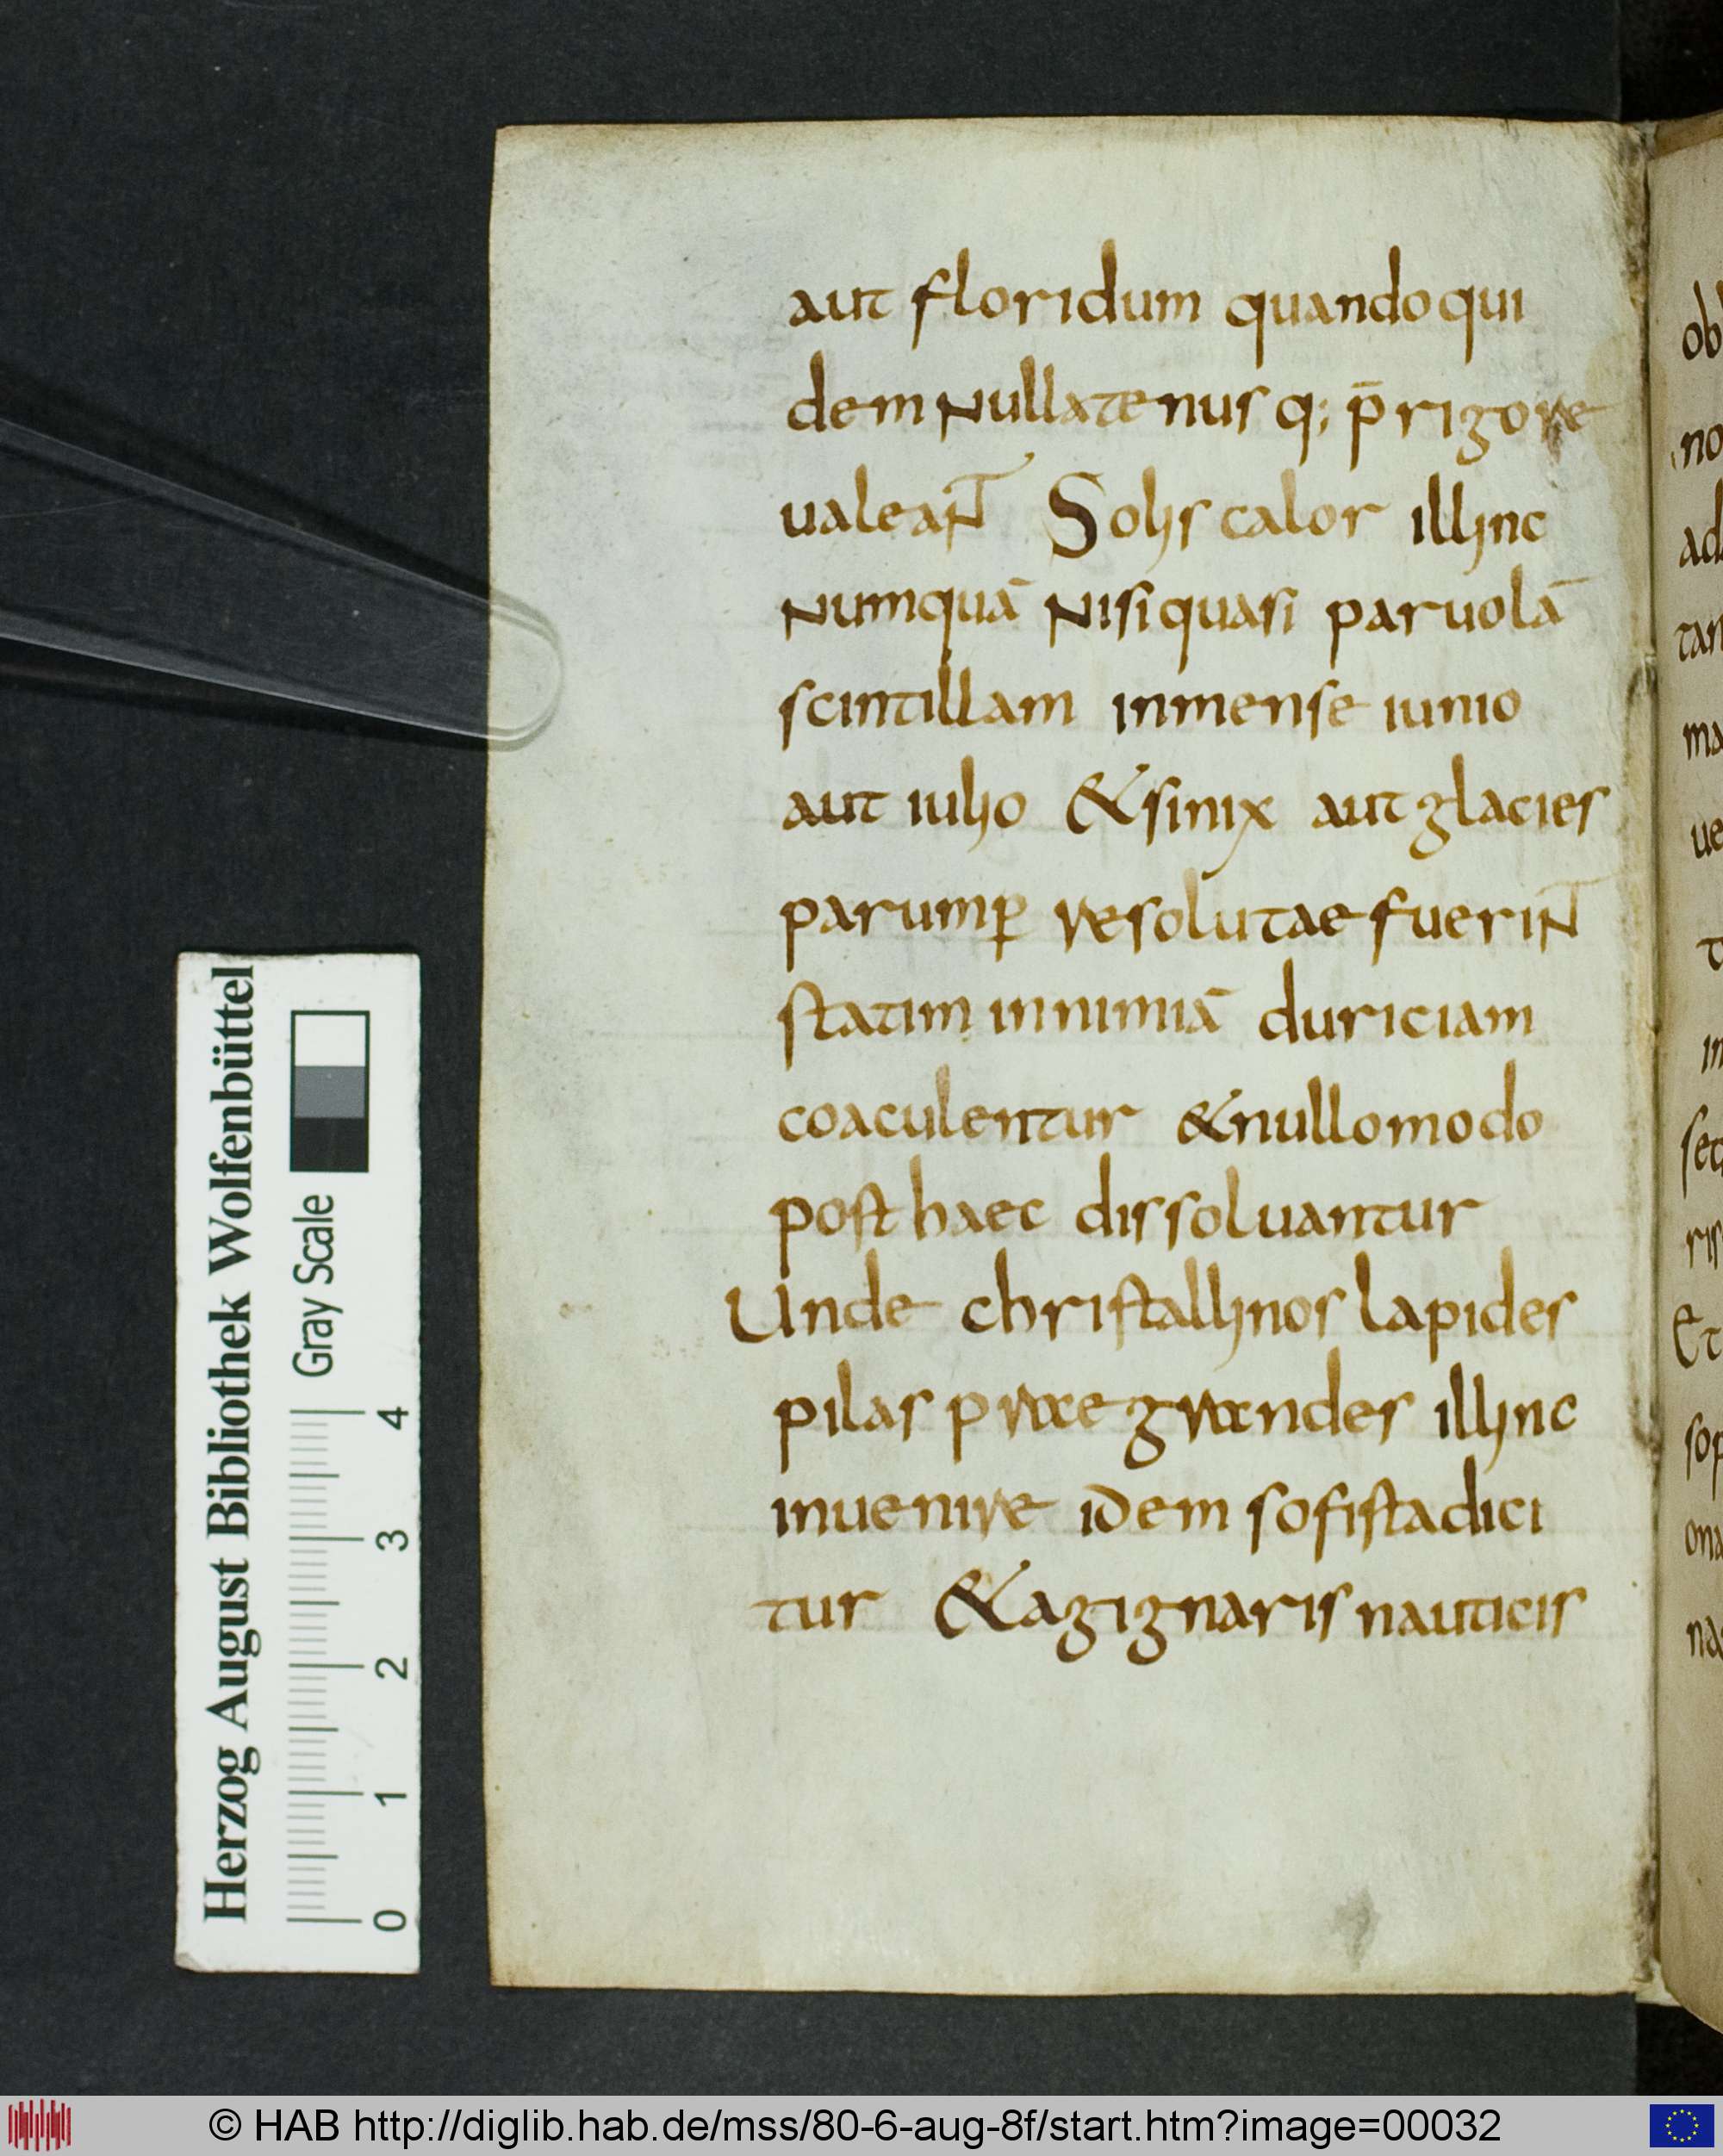 aut floridum quandoqui
dem nullatenus q; p̄ rigore
ualeant Solis calor illinc
numquā nisi quasi paruolā
scintillam inmense iunio
aut iulio & si nix aut glacies
parumꝑ resolutae fuerint
statim in nimiā duriciam
coaculentur & nullo modo
post haec dissoluantur
Unde christallinos lapides
pilas praegrandes illinc
inuenire idem sofista dici
tur & a gignaris nauticis
ob
no
ad
tan
ma
ue
t
in
set
ris
Et
sop
ona
na
Herzog August Bibliothek Wolfenbüttel
Gray Scale
0 1 2 3 4
© HAB http://diglib.hab.de/mss/80-6-aug-8f/start.htm?image=00032